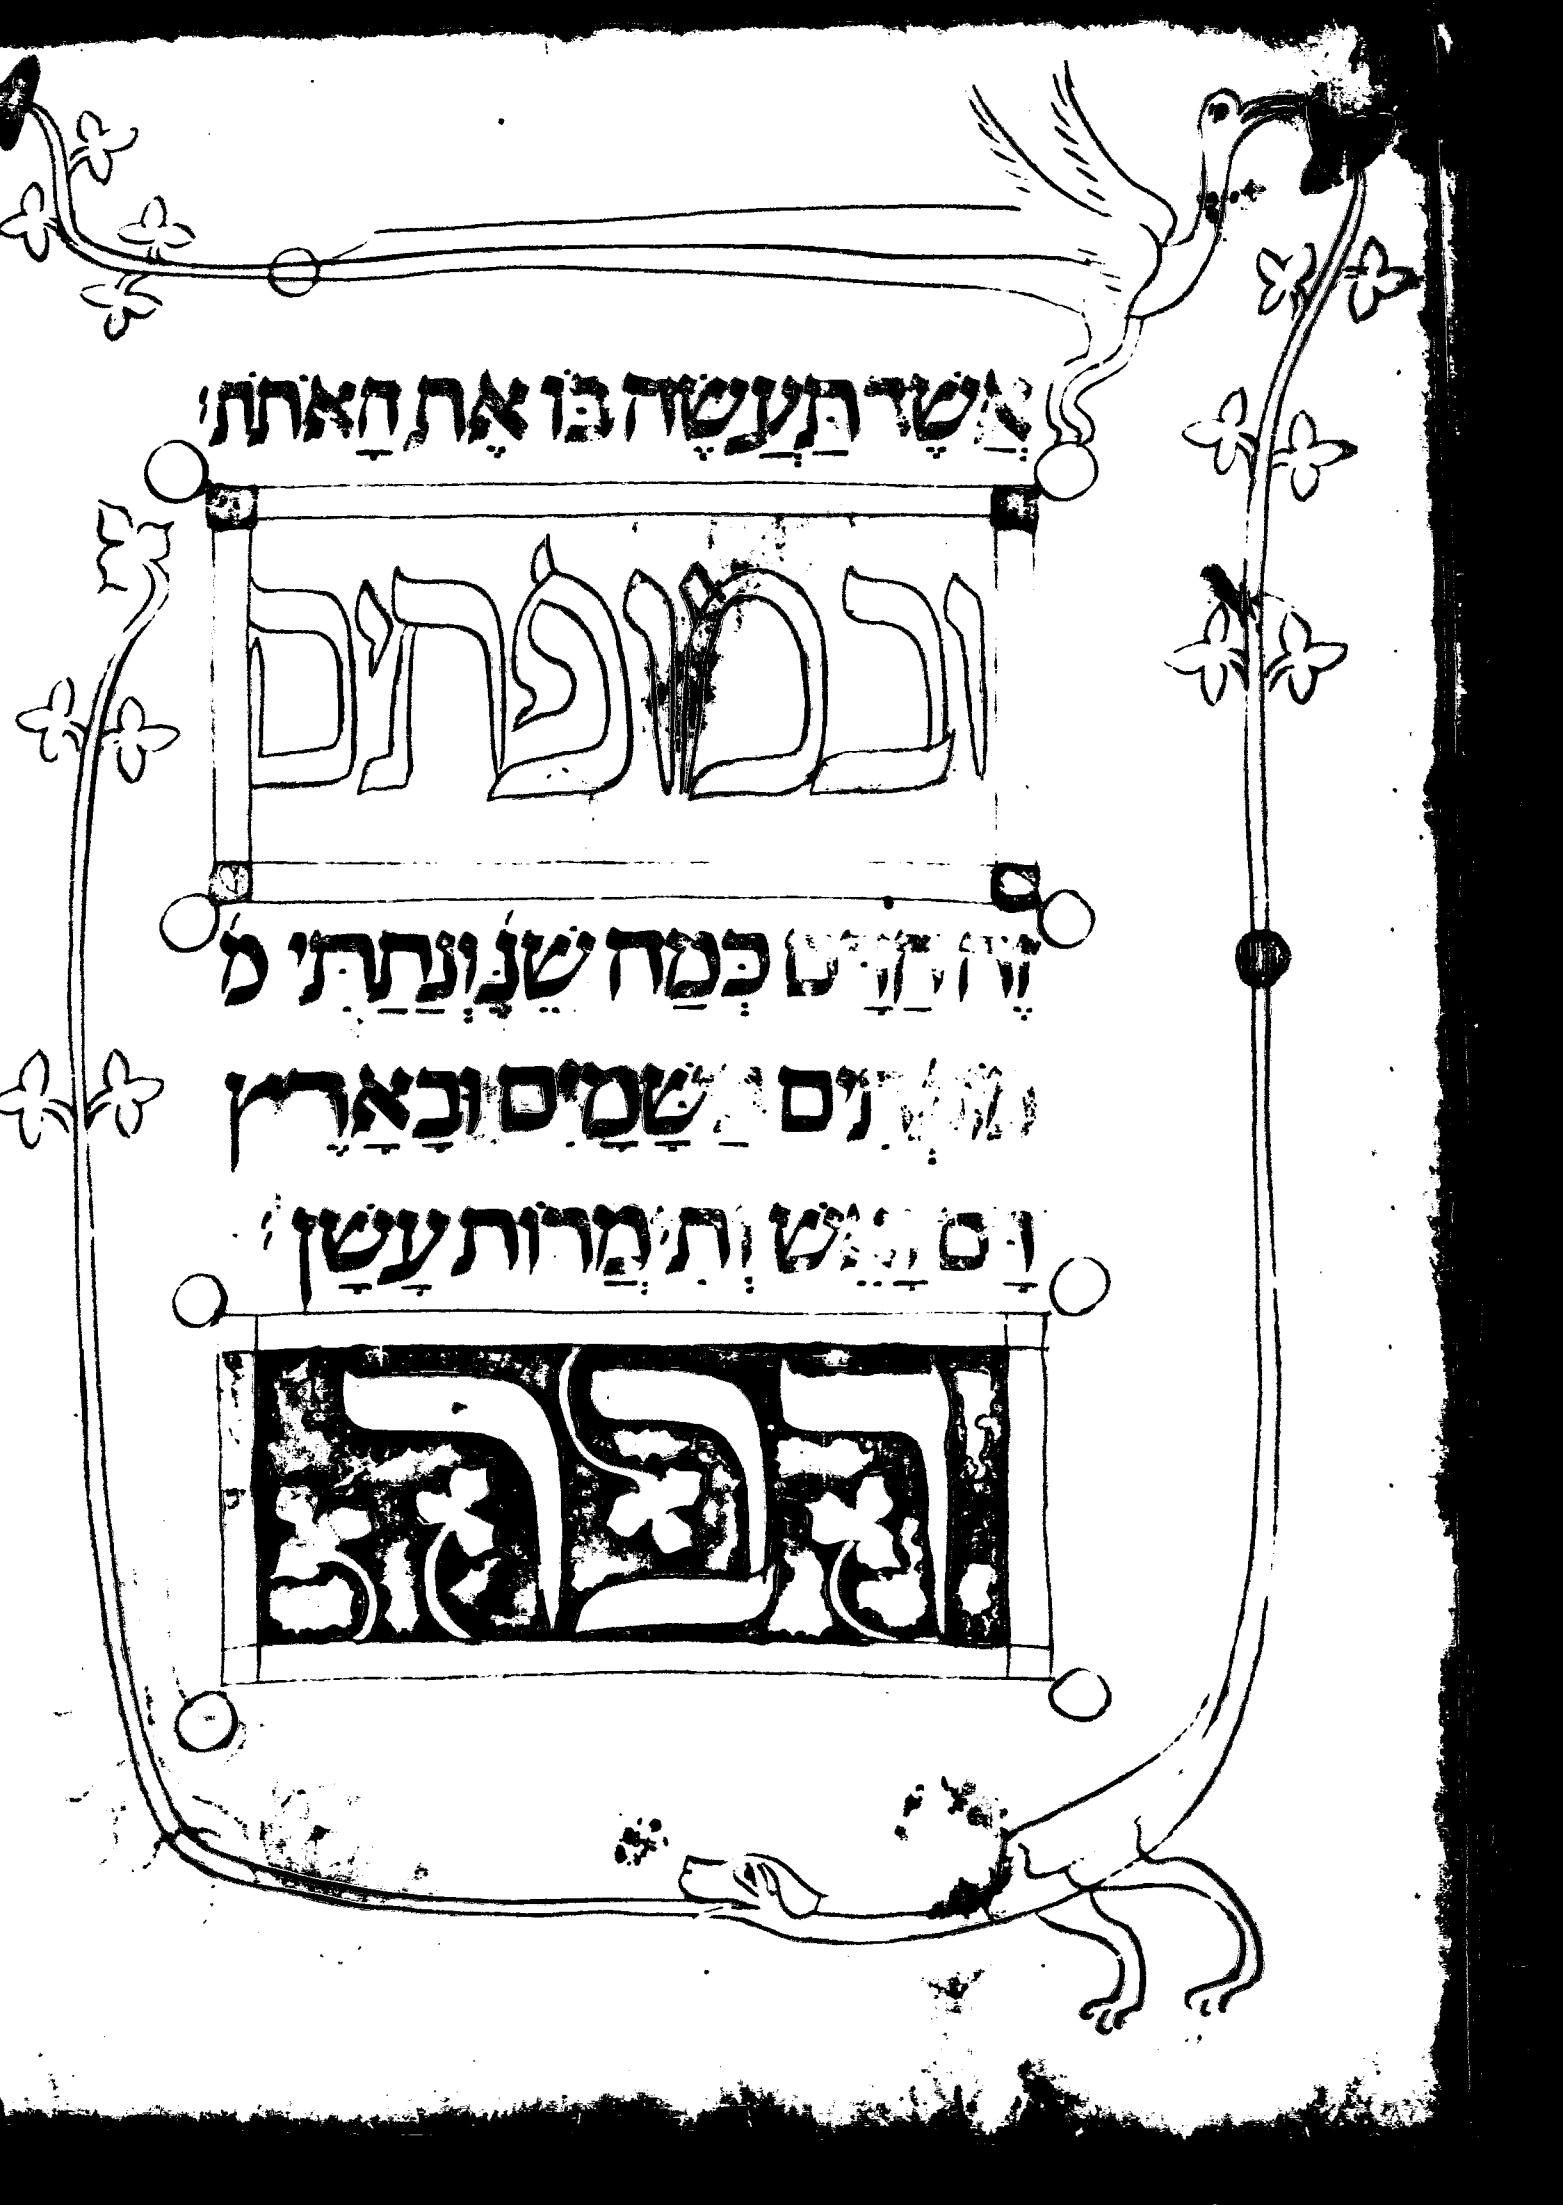 אֲשֶׁר תַּעֲשֶׂה בּוֹ אֶת הָאֹתֹת׳
ובמופתים
זֶה הַדָּם כְּמָה שֶׁנֶּ׳ וְנָתַתִּי מ
מוֹפְתִים בַּשָּׁמַיִם וּבָאָרֶץ
דָּם וָאֵשׁ וְתִימְרוֹת עָשָׁן ׳
דבר